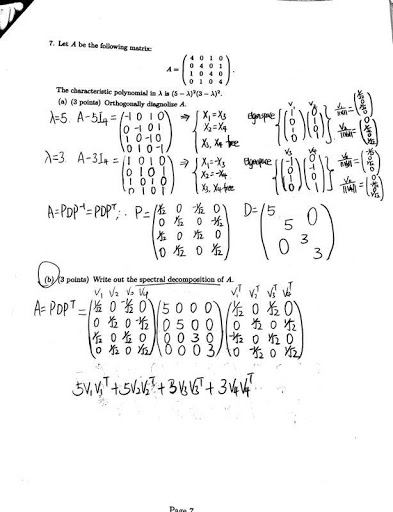 7. Let A be the following matrix:
A = (4 0 1 0
0 4 0 1
1 0 4 0
0 1 0 4).
The characteristic polynomial in λ is (5 − λ)²(3 − λ)².
(a) (3 points) Orthogonally diagnolise A.
λ=5. A-5I₄ = (-1 0 1 0
0 -1 0 1
1 0 -1 0
0 1 0 -1) ⇒ { X₁=X₃
X₂=X₄
X₃, X₄ free
Eigenspace {(1 0 1 0) (0 1 0 1)}
λ=3. A-3I₄ = (1 0 1 0
0 1 0 1
1 0 1 0
0 1 0 1) ⇒ { X₁=-X₃
X₂=-X₄
X₃, X₄ free
Eigenspace {(-1 0 1 0) (0 -1 0 1)}
A=PDP⁻¹=PDPᵀ, ∴ P= (1/√2 0 -1/√2 0
0 1/√2 0 -1/√2
1/√2 0 1/√2 0
0 1/√2 0 1/√2)
D= (5
5 0
0 3
3)
(b) (3 points) Write out the spectral decomposition of A.
V₁ V₂ V₃ V₄
A= PDPᵀ = (1/√2 0 -1/√2 0
0 1/√2 0 -1/√2
1/√2 0 1/√2 0
0 1/√2 0 1/√2)
(5 0 0 0
0 5 0 0
0 0 3 0
0 0 0 3)
V₁ᵀ V₂ᵀ V₃ᵀ V₄ᵀ
5V₁V₁ᵀ + 5V₂V₂ᵀ + 3V₃V₃ᵀ + 3V₄V₄ᵀ
Page 7